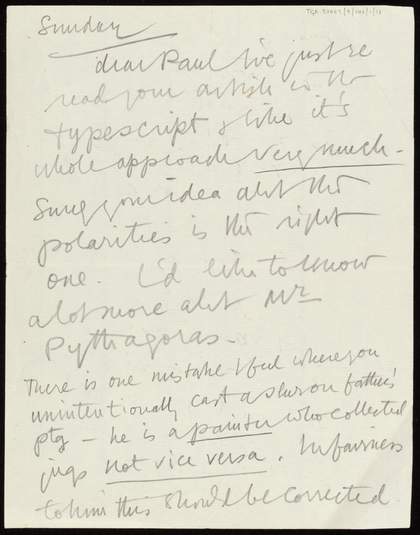 Sunday
dear Paul I've just re
read your article in the
typescript & like it's
whole approach very much -
Sure yr idea abt the
polarities is the right
one. I'd like to know
a lot more abt Mr
Pythagoras -
There is one mistake I feel where you
unintentionally cast a slur on father's
ptg - he is a painter who collected
jugs not vice versa. In fairness
to him this should be corrected